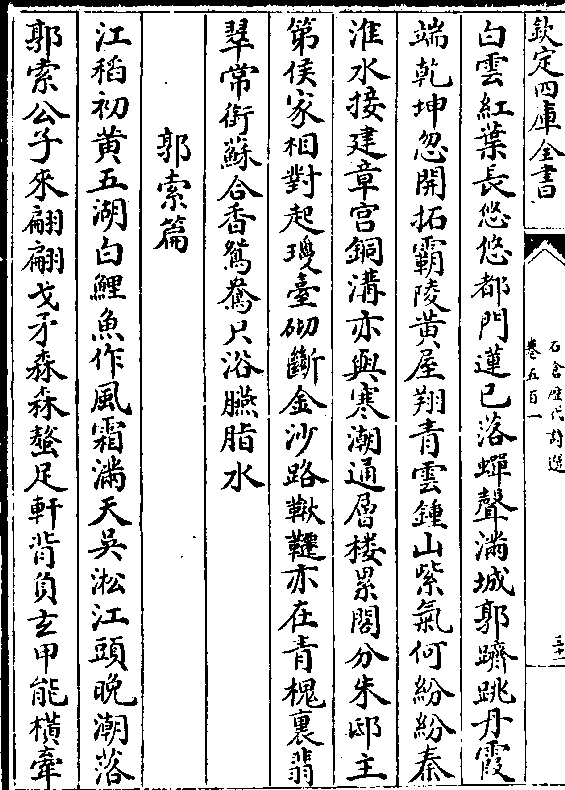 欽定四庫全書
石倉歷代詩選
卷五百一
三十一
白雲紅葉長悠悠都門蓮已落蟬聲滿城郭躋跳丹霞
端乾坤忽開拓霸陵黃屋翔青雲鍾山紫氣何紛紛秦
淮水接建章宫銅溝亦與寒潮通層楼累閣分朱邸主
第侯家相對起瓊臺砌斷金沙路鞦韆亦在青槐裏翡
翠常銜蘇合香鴛鴦只浴臙脂水
郭索篇
江稻初黃五湖白鯉魚作風霜滿天吳淞江頭晚潮落
郭索公子來翩翩戈矛森森螯足軒背負玄甲能橫牽